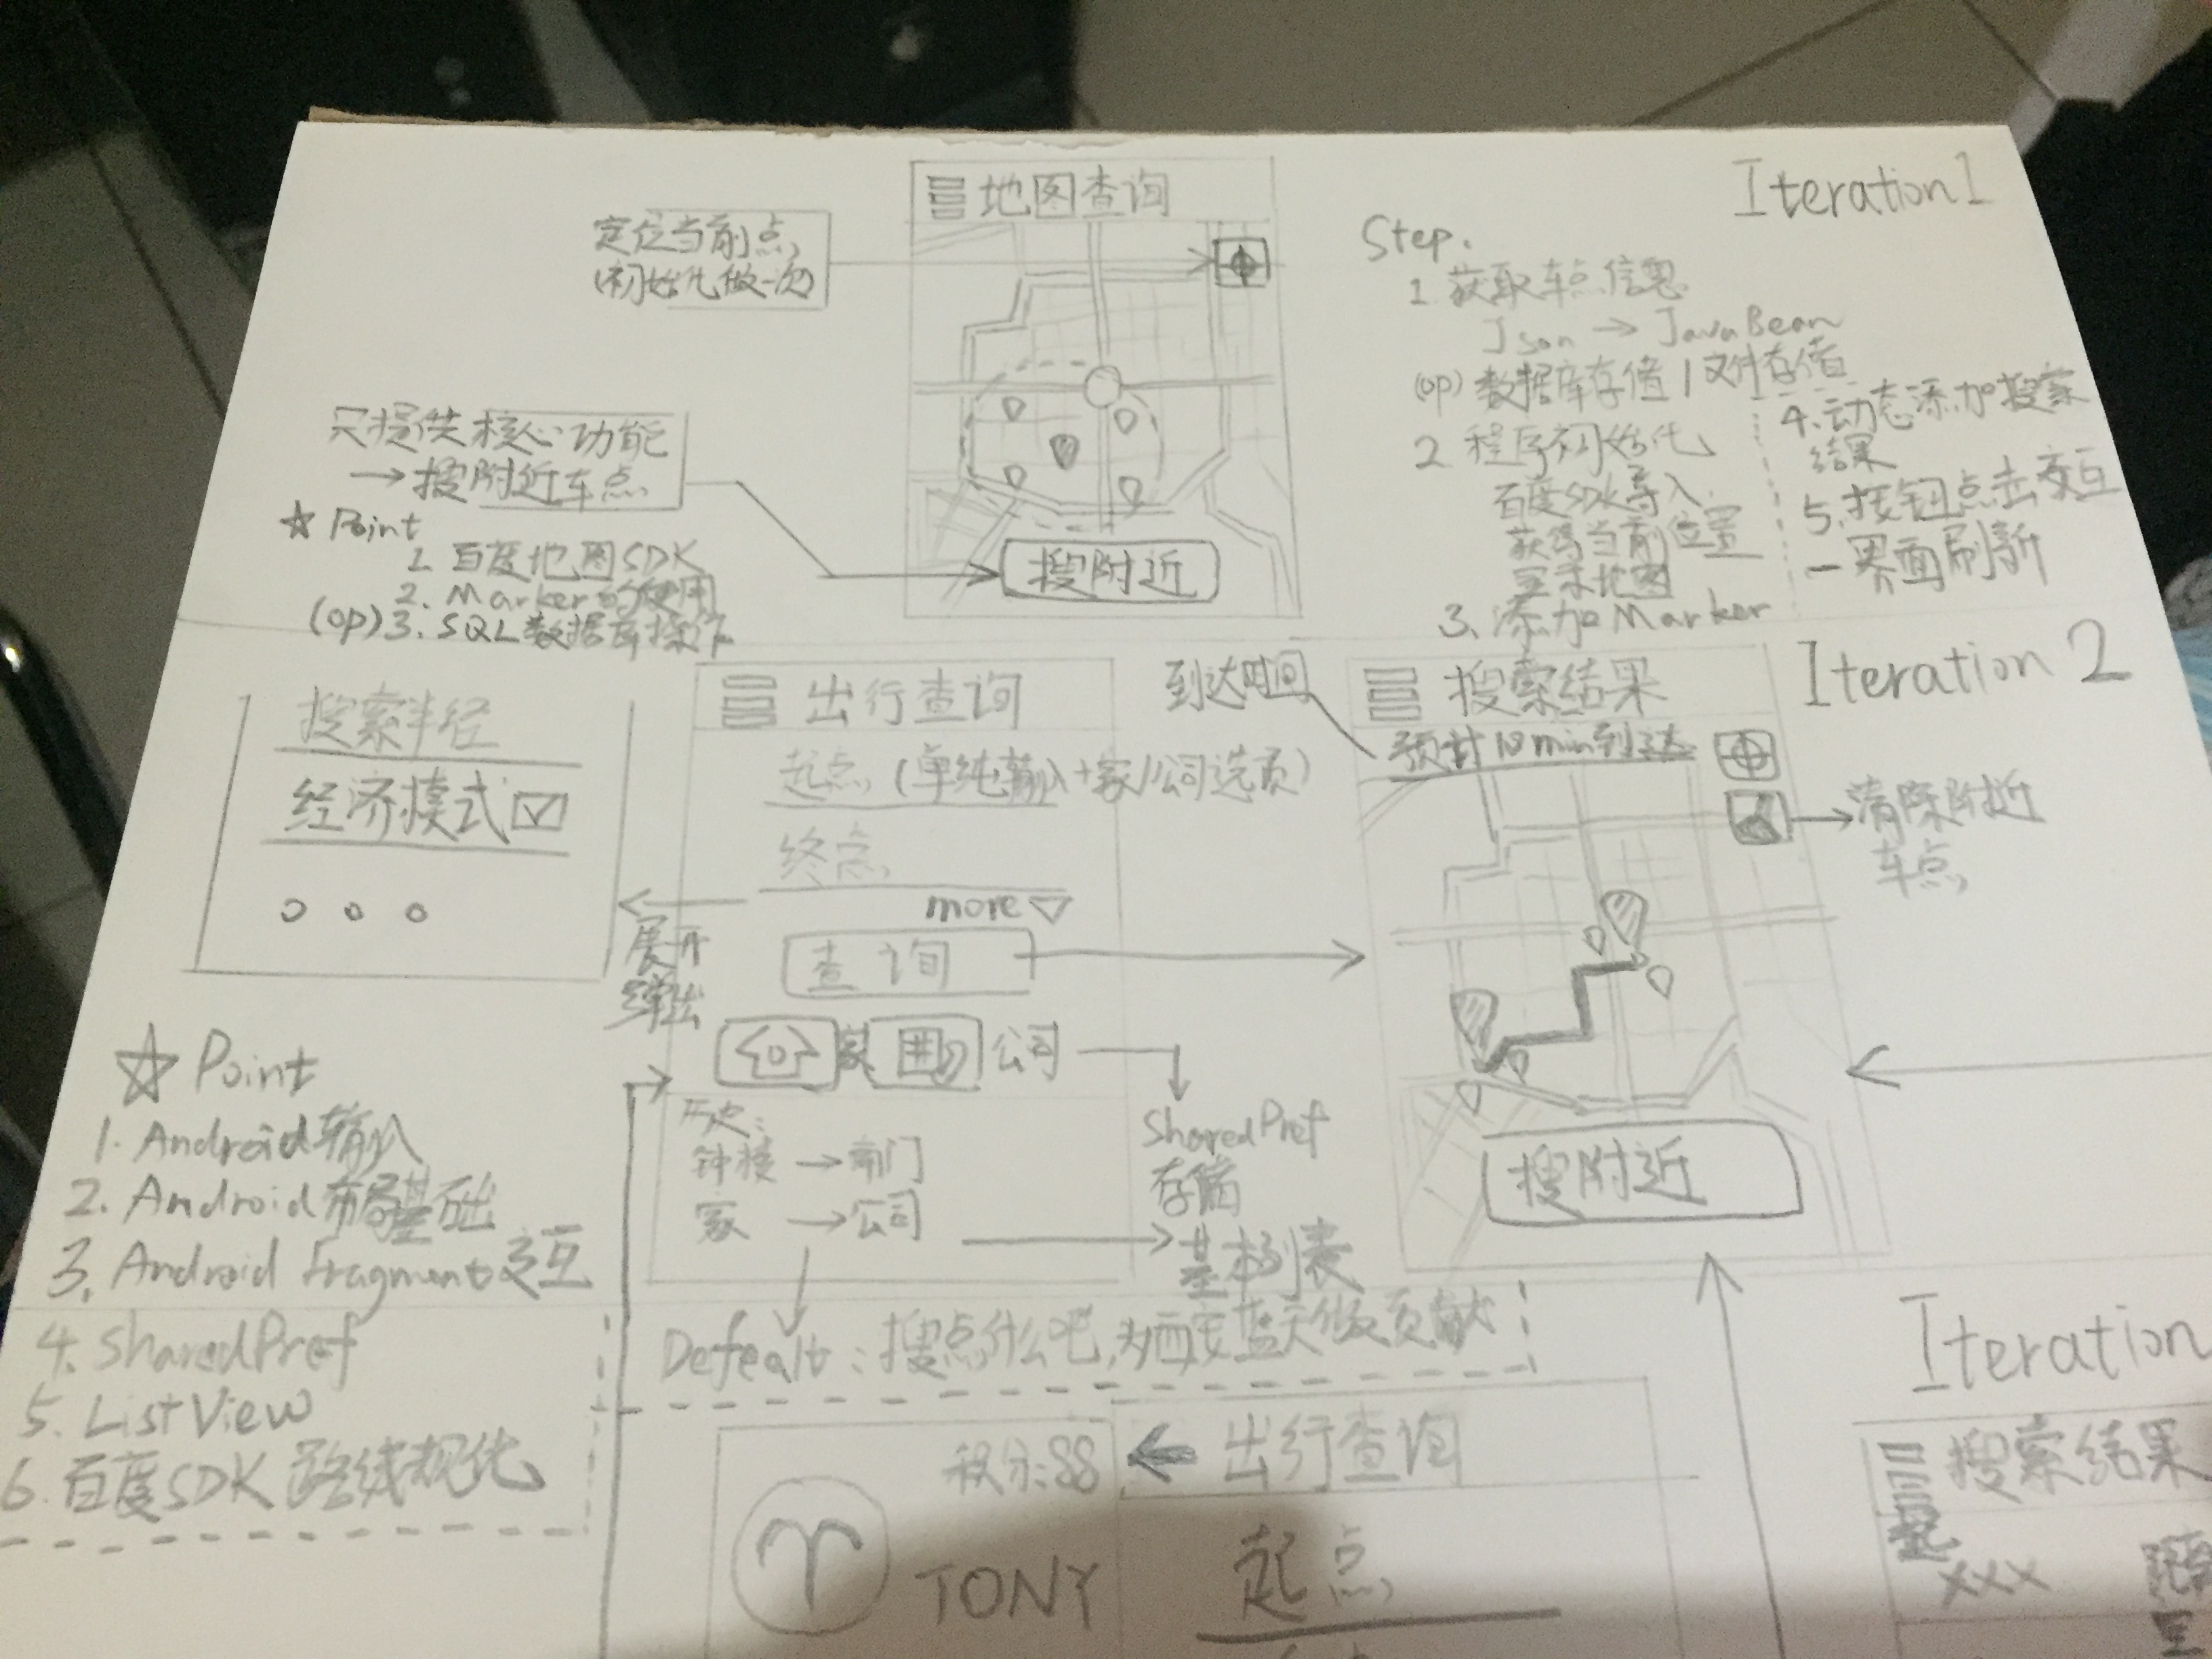 Iteration 1
地图查询
定位当前点,
(初始化做一次)
只提供核心功能
→搜附近车点
☆ Point
1. 百度地图SDK
2. Marker的使用
(op) 3. SQL数据库操作
搜附近
Step.
1 获取车点信息
Json → JavaBean
(op) 数据库存储 / 文件存储
2 程序初始化
百度SDK导入
获得当前位置
显示地图
3. 添加Marker
4. 动态添加搜索
结果
5. 按钮点击交互
一界面刷新
Iteration 2
搜索半径
经济模式
展开
弹出
出行查询
起点 (单纯输入+家/公司选项)
终点
more
查询
家
公司
历史:
钟楼 → 南门
家 → 公司
SharedPref
存储
基本列表
Defealt: 搜点什么吧,为西安蓝天做贡献
到达时间
搜索结果
预计10min到达
清除附近
车点
搜附近
☆ Point
1. Android输入
2. Android布局基础
3. Android fragment交互
4. SharedPref
5. ListView
6. 百度SDK 路线规化
积分:88
TONY
出行查询
起点
Iteration
搜索结果
xxx